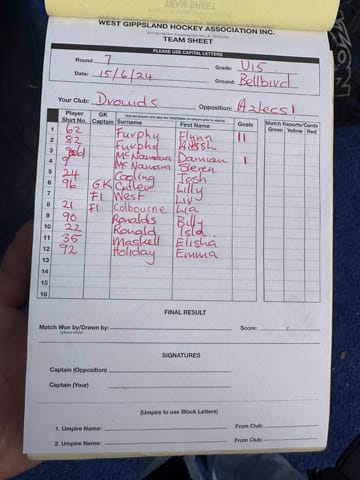 WEST GIPPSLAND HOCKEY ASSOCIATION INC.
TEAM SHEET
PLEASE USE CAPITAL LETTERS
Round: 7 Grade: U15
Date: 15/6/24 Ground: Bellbird
Your Club: Drouids Opposition: Aztecs 1
Player Shirt No. GK Captain Surname First Name Goals Match Reports/Cards Green Yellow Red
1 62 Furphy Flynn 11
2 82 Furphy
3 McNamara Damian 1
4 9 McNamara Steven
5 24 Coding Josh
6 96 GK Cutler Lilly
7 F1 West Liv
8 21 F1 Colbourne Lia
9 90 Ronalds Bill
10 22 Ronald Isla
11 35 Maskell Elisha
12 92 Holiday Emma
13
14
15
16
FINAL RESULT
Match Won by/Drawn by: Score: /
SIGNATURES
Captain (Opposition)
Captain (Your)
(Umpire to use Block Letters)
1. Umpire Name: From Club:
2. Umpire Name: From Club: